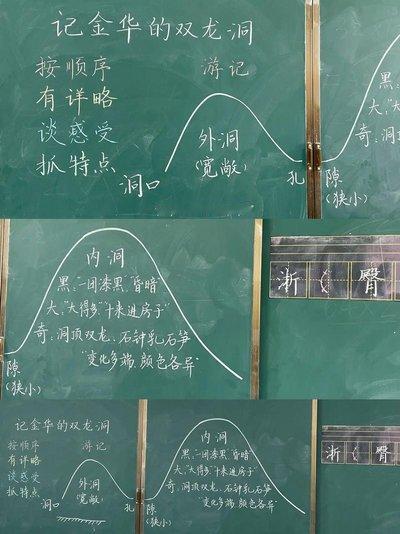 记金华的双龙洞
按顺序
游记
有详略
谈感受
抓特点
外洞
(宽敞)
洞口
孔
隙
(狭小)
黑:
大:
奇:洞顶
内洞
黑:"一团漆黑,"昏暗"
大:"大得多""十来进房子"
奇:洞顶双龙、石钟乳石笋
"变化多端,颜色各异"
隙
(狭小)
浙 臀
记金华的双龙洞
按顺序
游记
有详略
谈感受
抓特点
外洞
(宽敞)
洞口
孔
隙
(狭小)
内洞
黑:"一团漆黑,"昏暗"
大:"大得多""十来进房子"
奇:洞顶双龙、石钟乳石笋
"变化多端,颜色各异"
浙 臀